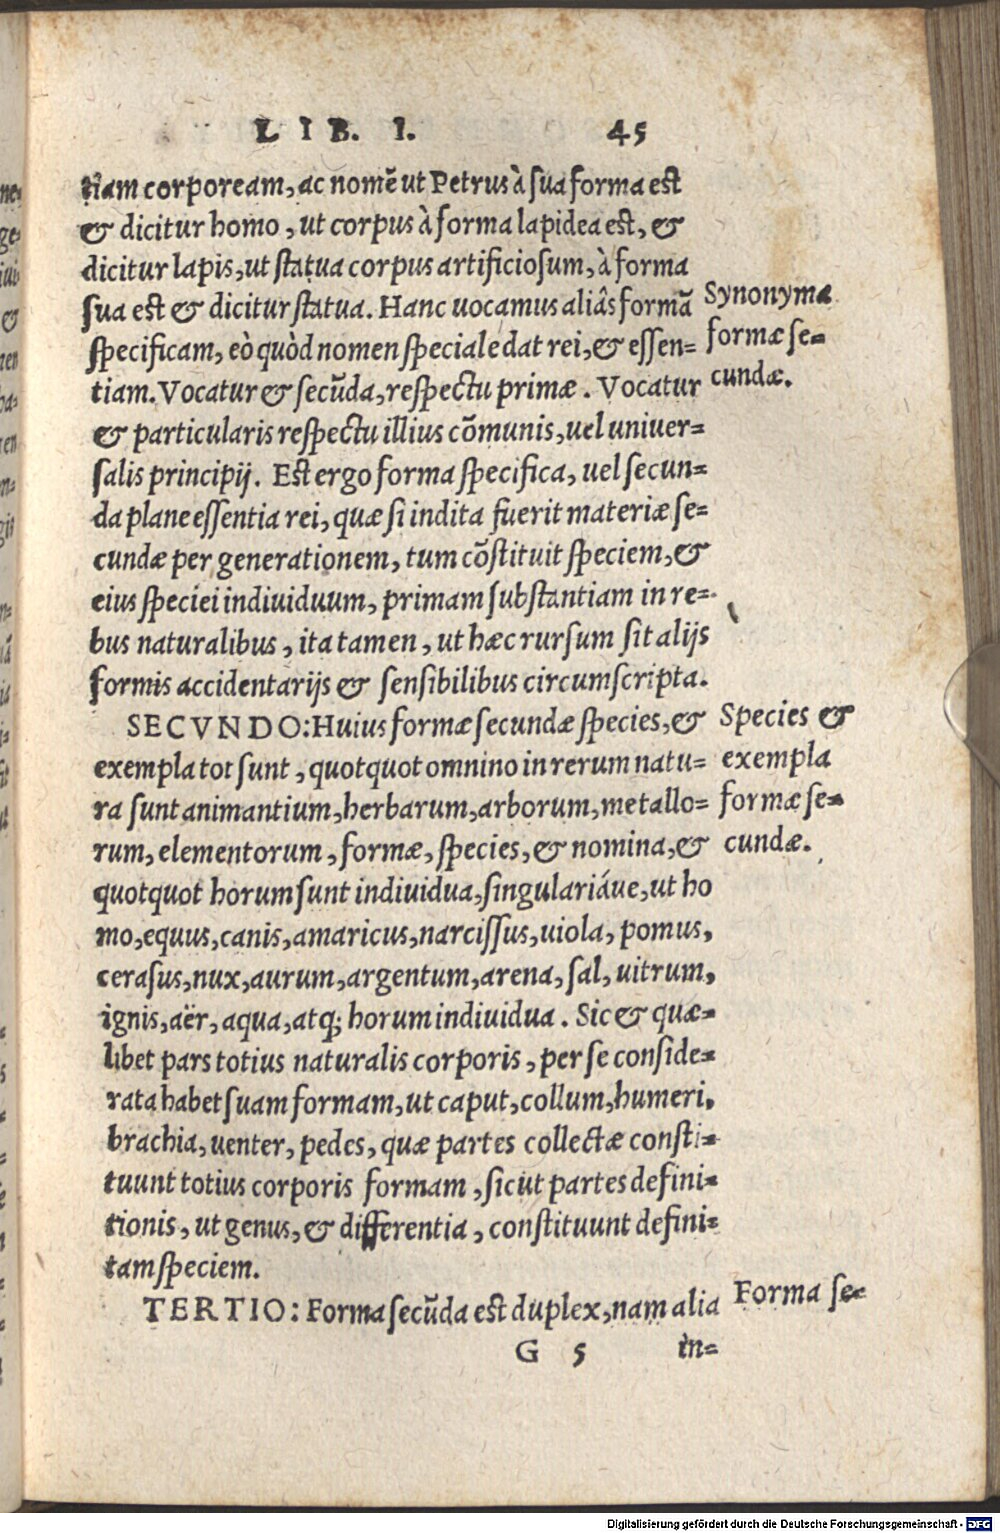 LIB. I. 45
riam corpoream, ac nomẽ ut Petrus à sua forma est
& dicitur homo, ut corpus à forma lapidea est, &
dicitur lapis, ut statua corpus artificiosum, à forma
sua est & dicitur statua. Hanc uocamus aliâs formã
specificam, eò quòd nomen speciale dat rei, & essen=
tiam. Vocatur & secũda, respectu primæ. Vocatur
& particularis respectu illius cõmunis, uel uniuer=
salis principij. Est ergo forma specifica, uel secun=
da plane essentia rei, quæ si indita fuerit materiæ se=
cundæ per generationem, tum cõstituit speciem, &
eius speciei indiuiduum, primam substantiam in re=
bus naturalibus, ita tamen, ut hæc rursum sit alijs
formis accidentarijs & sensibilibus circumscripta.
Synonyma
formæ se=
cundæ.
SECVNDO: Huius formæ secundæ species, &
exempla tot sunt, quotquot omnino in rerum natu=
ra sunt animantium, herbarum, arborum, metallo=
rum, elementorum, formæ, species, & nomina, &
quotquot horum sunt indiuidua, singulariáue, ut ho
mo, equus, canis, amaricus, narcissus, uiola, pomus,
cerasus, nux, aurum, argentum, arena, sal, uitrum,
ignis, aër, aqua, atq; horum indiuidua. Sic & quæ=
libet pars totius naturalis corporis, per se conside=
rata habet suam formam, ut caput, collum, humeri,
brachia, uenter, pedes, quæ partes collectæ consti=
tuunt totius corporis formam, sicut partes defini=
tionis, ut genus, & differentia, constituunt defini=
tam speciem.
Species &
exempla
formæ se=
cundæ.
TERTIO: Forma secũda est duplex, nam alia
Forma se=
G 5 in=
Digitalisierung gefördert durch die Deutsche Forschungsgemeinschaft - DFG